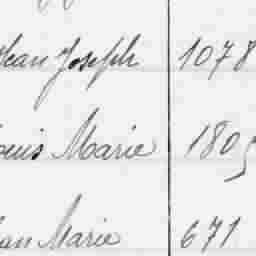 Jean Joseph 1078
Louis Marie 1805
Jean Marie 671